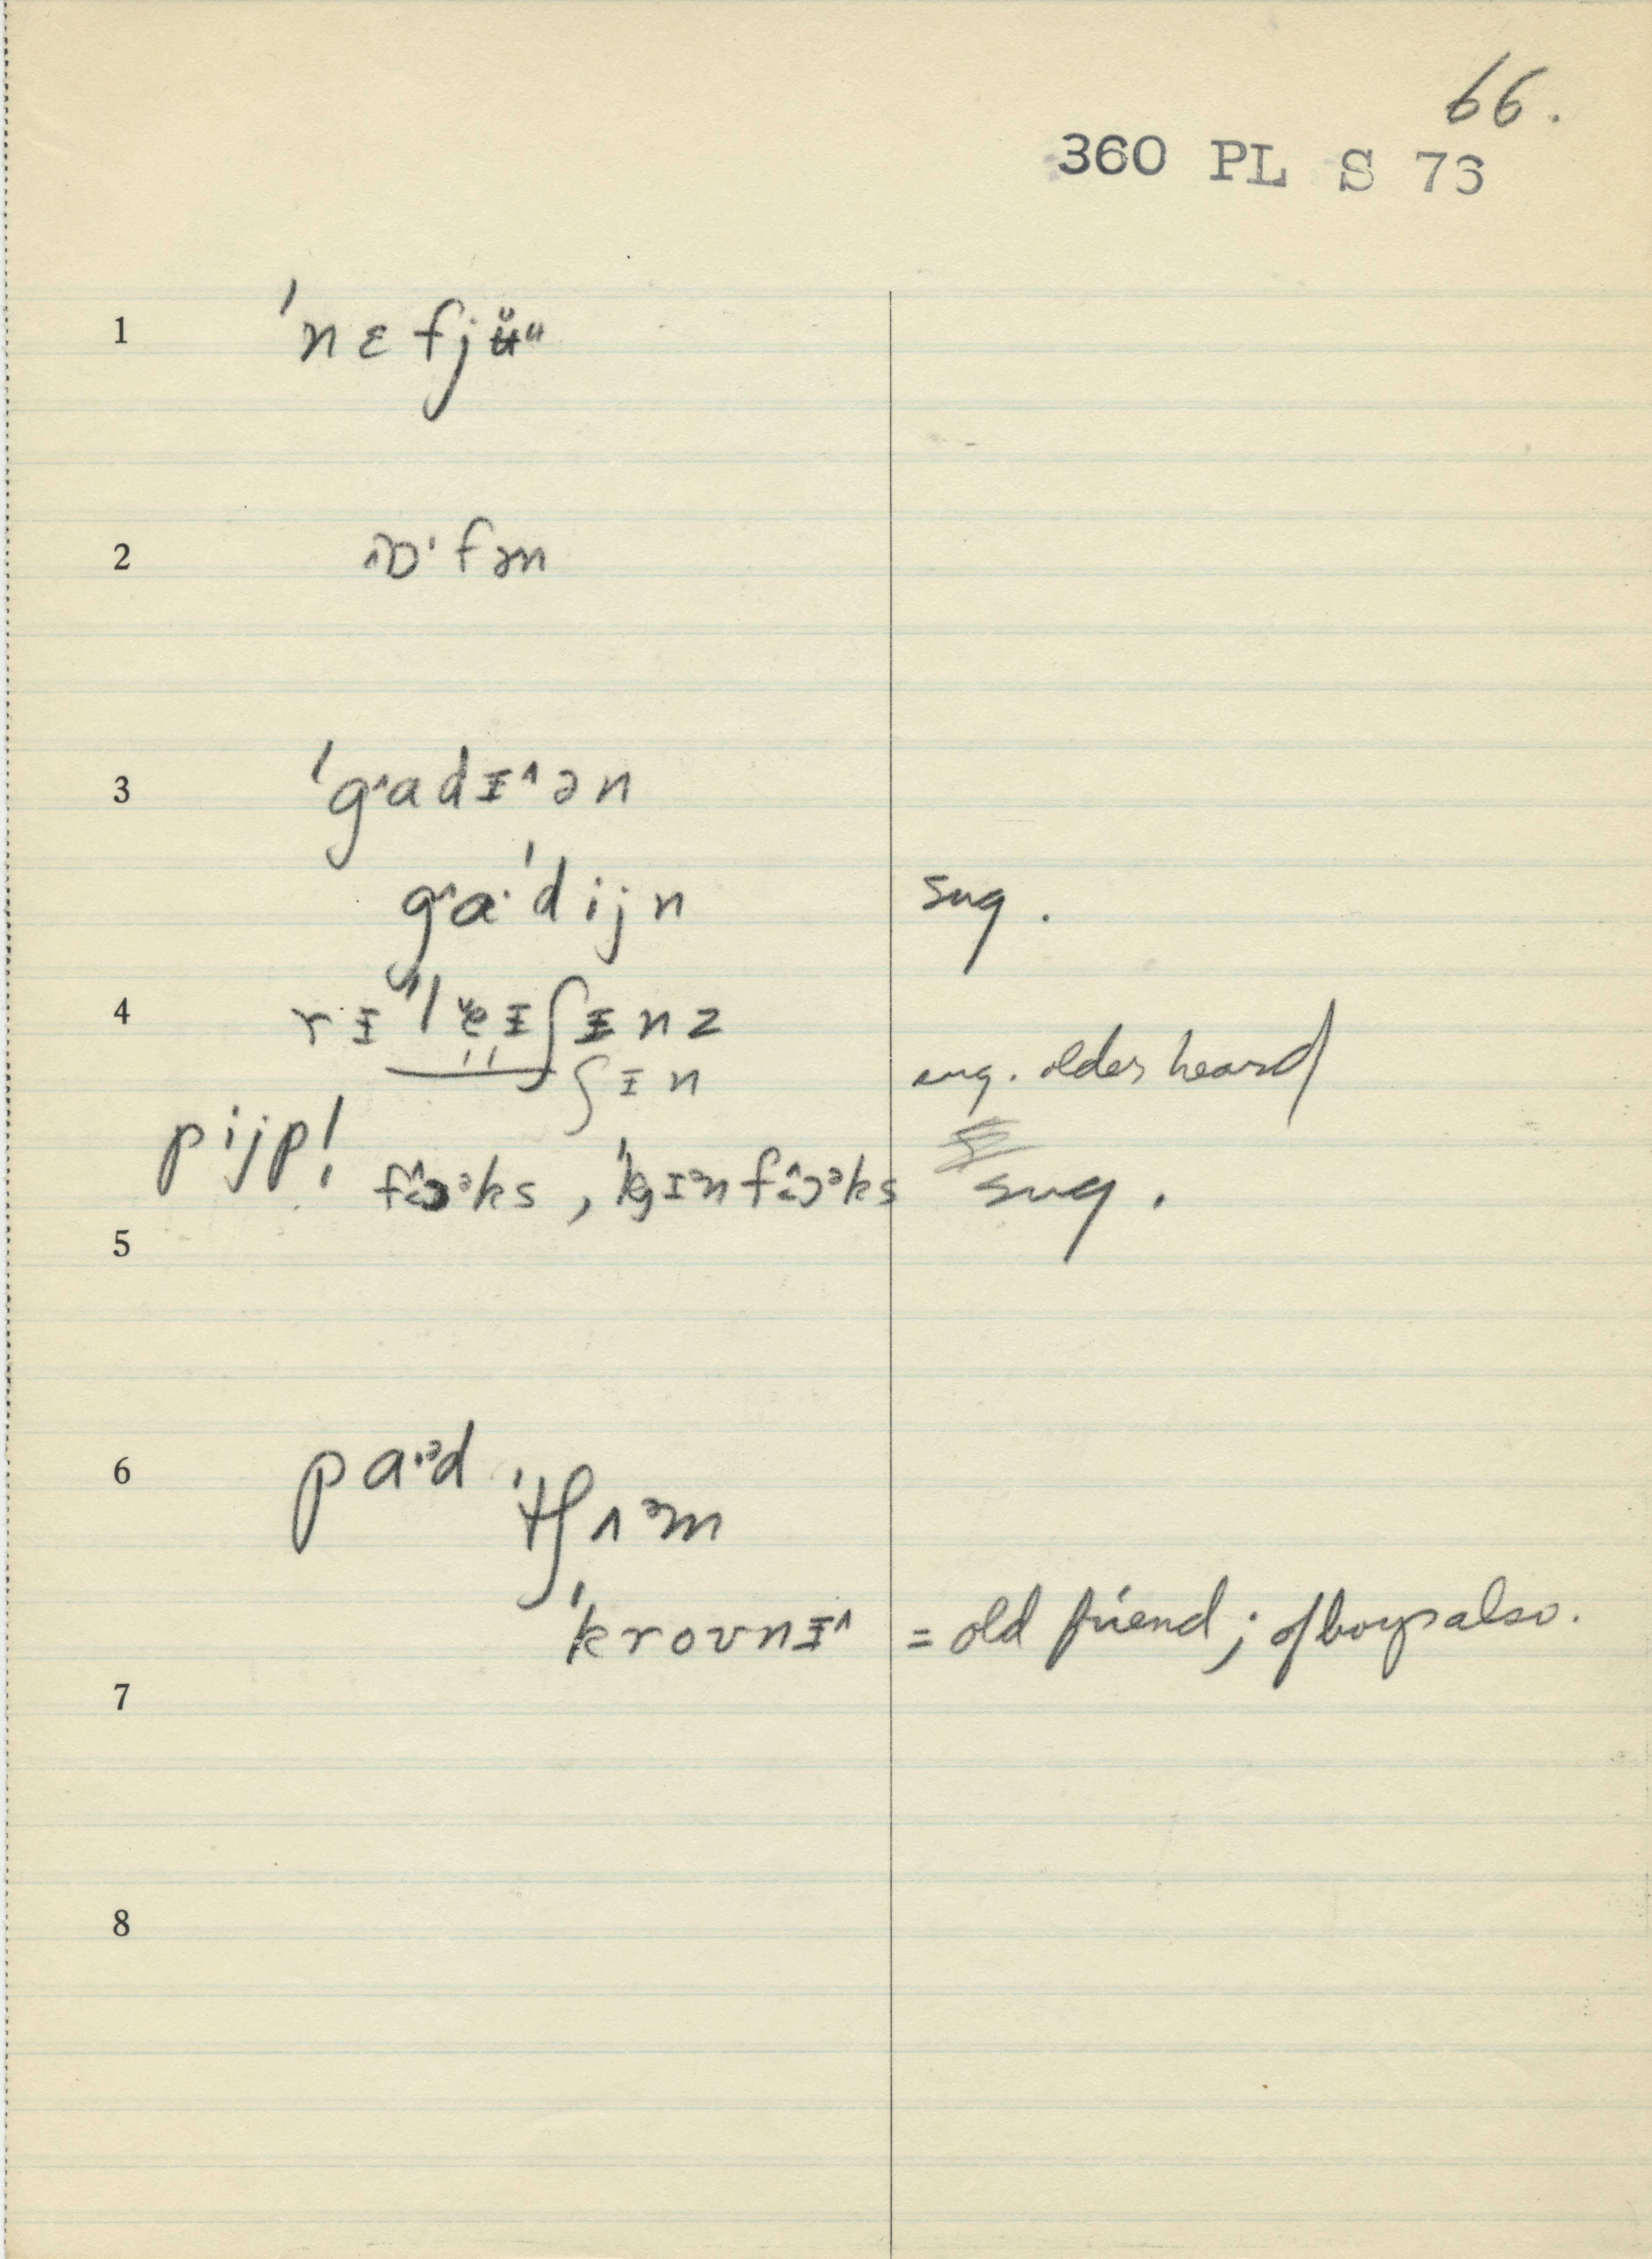 66.
360 PL S 76
1 ˈnɛfjʉ̈ᵘ
2 ɔˑfən
3 ˈg˄adɪ˄ən
g˄aˑˈdijn sug.
4 rɪˈleɪʃɪnz
ʃɪn sug. older heard
pijp! fɔᵊks, ˈkɪənfɔᵊks sug.
5
6 paˑᵊd ˈtʃʌᵊm
ˈkrovnɪ˄ = old friend; of boys also.
7
8